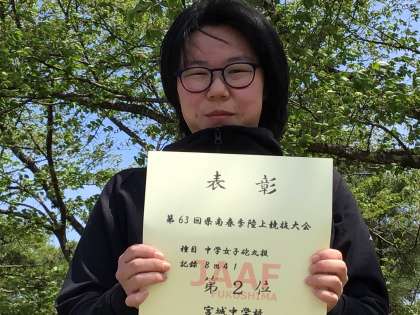 表彰
第63回県南春季陸上競技大会
種目 中学女子砲丸投
記録 8m41
JAAF
FUKUSHIMA
第2位
宮城中学校